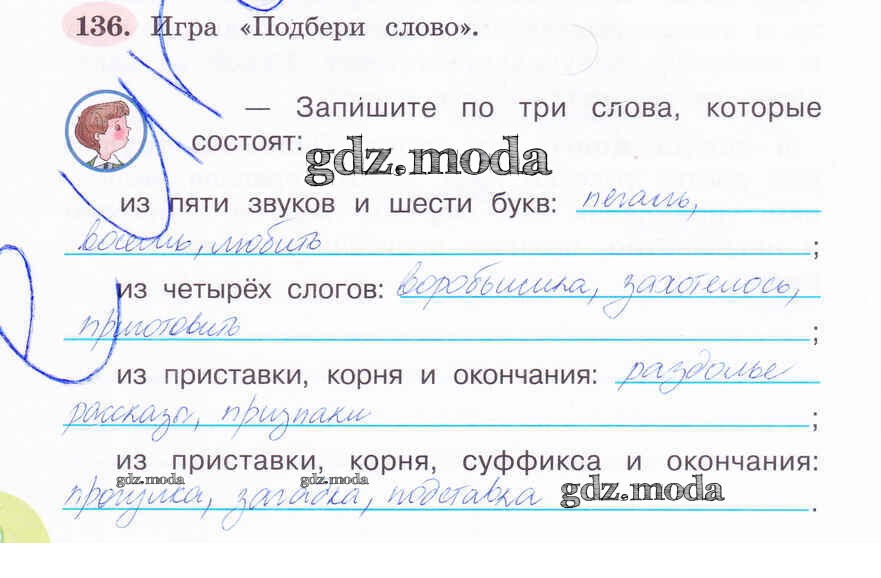 136. Игра «Подбери слово».
— Запишите по три слова, которые
состоят:
gdz.moda
из пяти звуков и шести букв: печаль,
восемь, любить ;
из четырёх слогов: воробышина, захотелось,
приготовить ;
из приставки, корня и окончания: раздолье
рассказы, признаки ;
из приставки, корня, суффикса и окончания:
gdz.moda gdz.moda
прогулка, загадка, подставка gdz.moda .